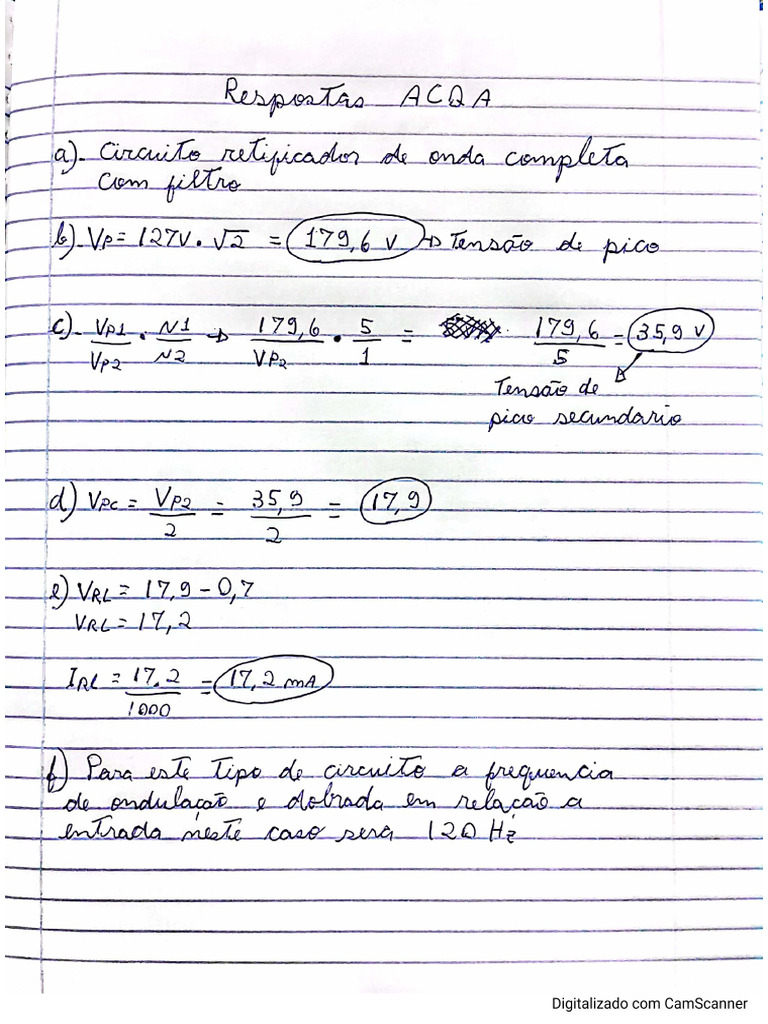 Respostas ACQA
a)- Circuito retificador de onda completa
com filtro
b) VP = 127V . √2 = 179,6 V → Tensão de pico
c)- VP1/VP2 . N1/N2 → 179,6/VP2 . 5/1 = 179,6/5 = 35,9 V
Tensão de
pico secundario
d) VPC = VP2/2 = 35,9/2 = 17,9
e) VRL = 17,9 - 0,7
VRL = 17,2
IRL = 17.2/1000 = 17,2 mA
f) Para este tipo de circuito a frequencia
de ondulação e dobrada em relação a
entrada neste caso sera 120 Hz
Digitalizado com CamScanner